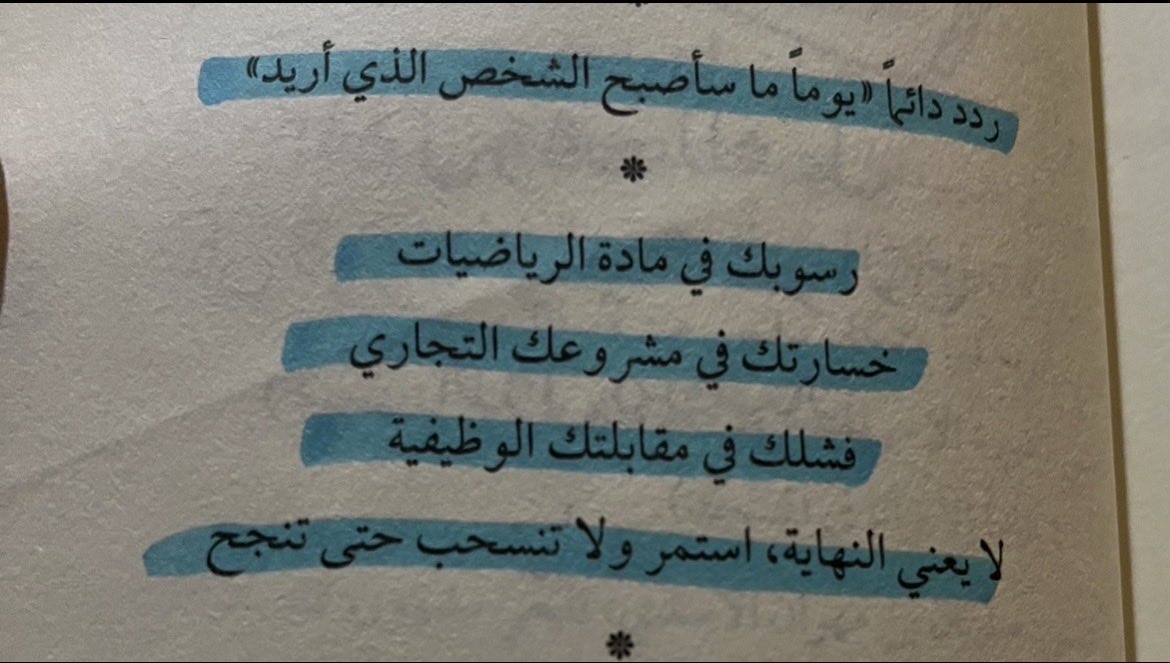 ردد دائماً «يوماً ما سأصبح الشخص الذي أريد»
رسوبك في مادة الرياضيات
خسارتك في مشروعك التجاري
فشلك في مقابلتك الوظيفية
لا يعني النهاية، استمر ولا تنسحب حتى تنجح